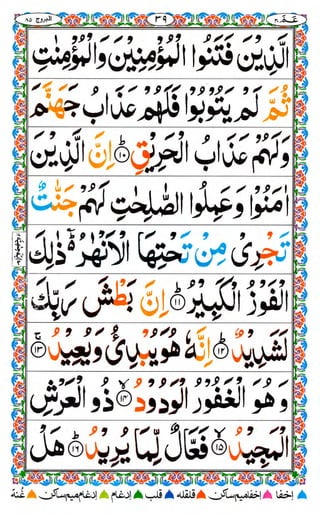 عم ٣٠ ٣٩ البروج ٨٥
الَّذِیۡنَ فَتَنُوا الۡمُؤۡمِنِیۡنَ وَالۡمُؤۡمِنٰتِ
ثُمَّ لَمۡ یَتُوۡبُوۡا فَلَهُمۡ عَذَابُ جَهَنَّمَ
وَلَهُمۡ عَذَابُ الۡحَرِیۡقِ ؕ‏﴿۱۰﴾ اِنَّ الَّذِیۡنَ
اٰمَنُوۡا وَعَمِلُوا الصّٰلِحٰتِ لَهُمۡ جَنّٰتٌ
تَجۡرِیۡ مِنۡ تَحۡتِهَا الۡاَنۡهٰرُ ؕؔ ذٰلِكَ
الۡفَوۡزُ الۡكَبِیۡرُ ؕ‏﴿۱۱﴾ اِنَّ بَطۡشَ رَبِّكَ
لَشَدِیۡدٌ ؕ‏﴿۱۲﴾ اِنَّهٗ هُوَ یُبۡدِئُ وَیُعِیۡدُ ۚ‏﴿۱۳﴾
وَهُوَ الۡغَفُوۡرُ الۡوَدُوۡدُ ۙ‏﴿۱۴﴾ ذُو الۡعَرۡشِ
الۡمَجِیۡدُ ۙ‏﴿۱۵﴾ فَعَّالٌ لِّمَا یُرِیۡدُ ؕ‏﴿۱۶﴾ هَلۡ
اخفا اخفا میم ساکن قلقله قلب ادغام ادغام میم ساکن غنه